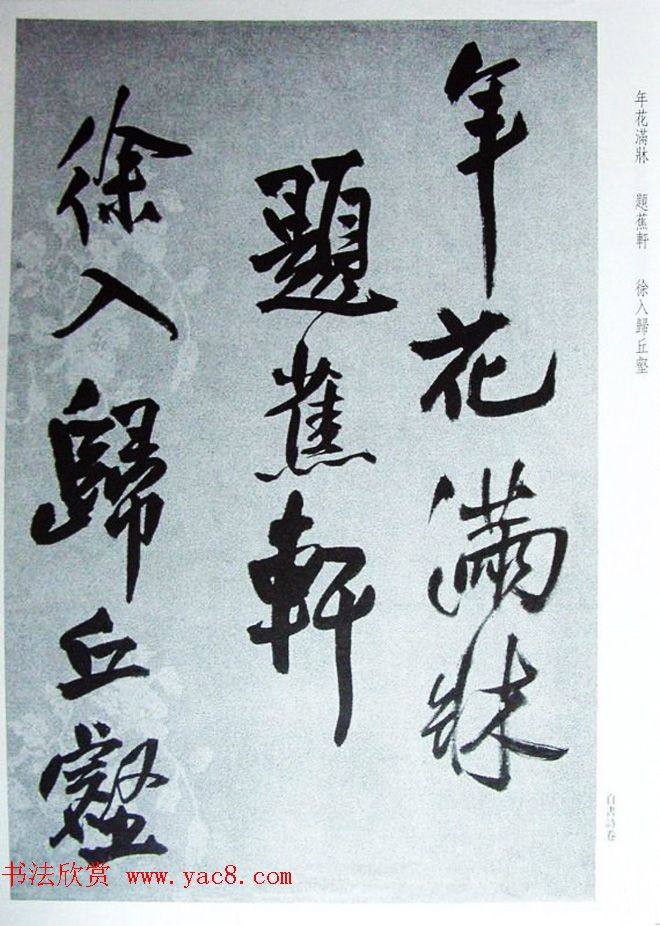 年花滿牀
題蕉軒
徐入歸丘壑
年花滿牀 題蕉軒 徐入歸丘壑
自書詩卷
书法欣赏 www.yac8.com